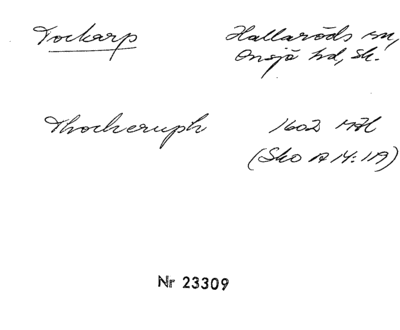 Tockarp Hallaröds sn,
Onsjö hd, Sk.
Thockeruph 1602 
(Sko A 14:119)
Nr 23309